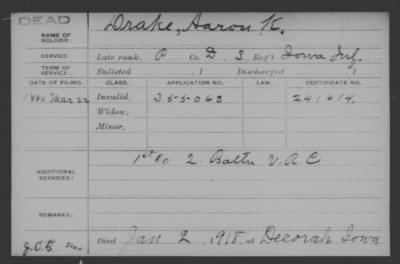 DEAD
NAME OF SOLDIER: Drake, Aaron K.
SERVICE: Late rank, P Co. D, 3 Reg't Iowa Inf.
TERM OF SERVICE: Enlisted , 1 Discharged , 1
DATE OF FILING. CLASS. APPLICATION NO. LAW. CERTIFICATE NO.
1880 Mar 22 Invalid, 355.063 241614.
Widow,
Minor,
ADDITIONAL SERVICES: 1st Co 2. Battn V.R.C
REMARKS:
Died Jan 2, 1918, at Decorah Iowa